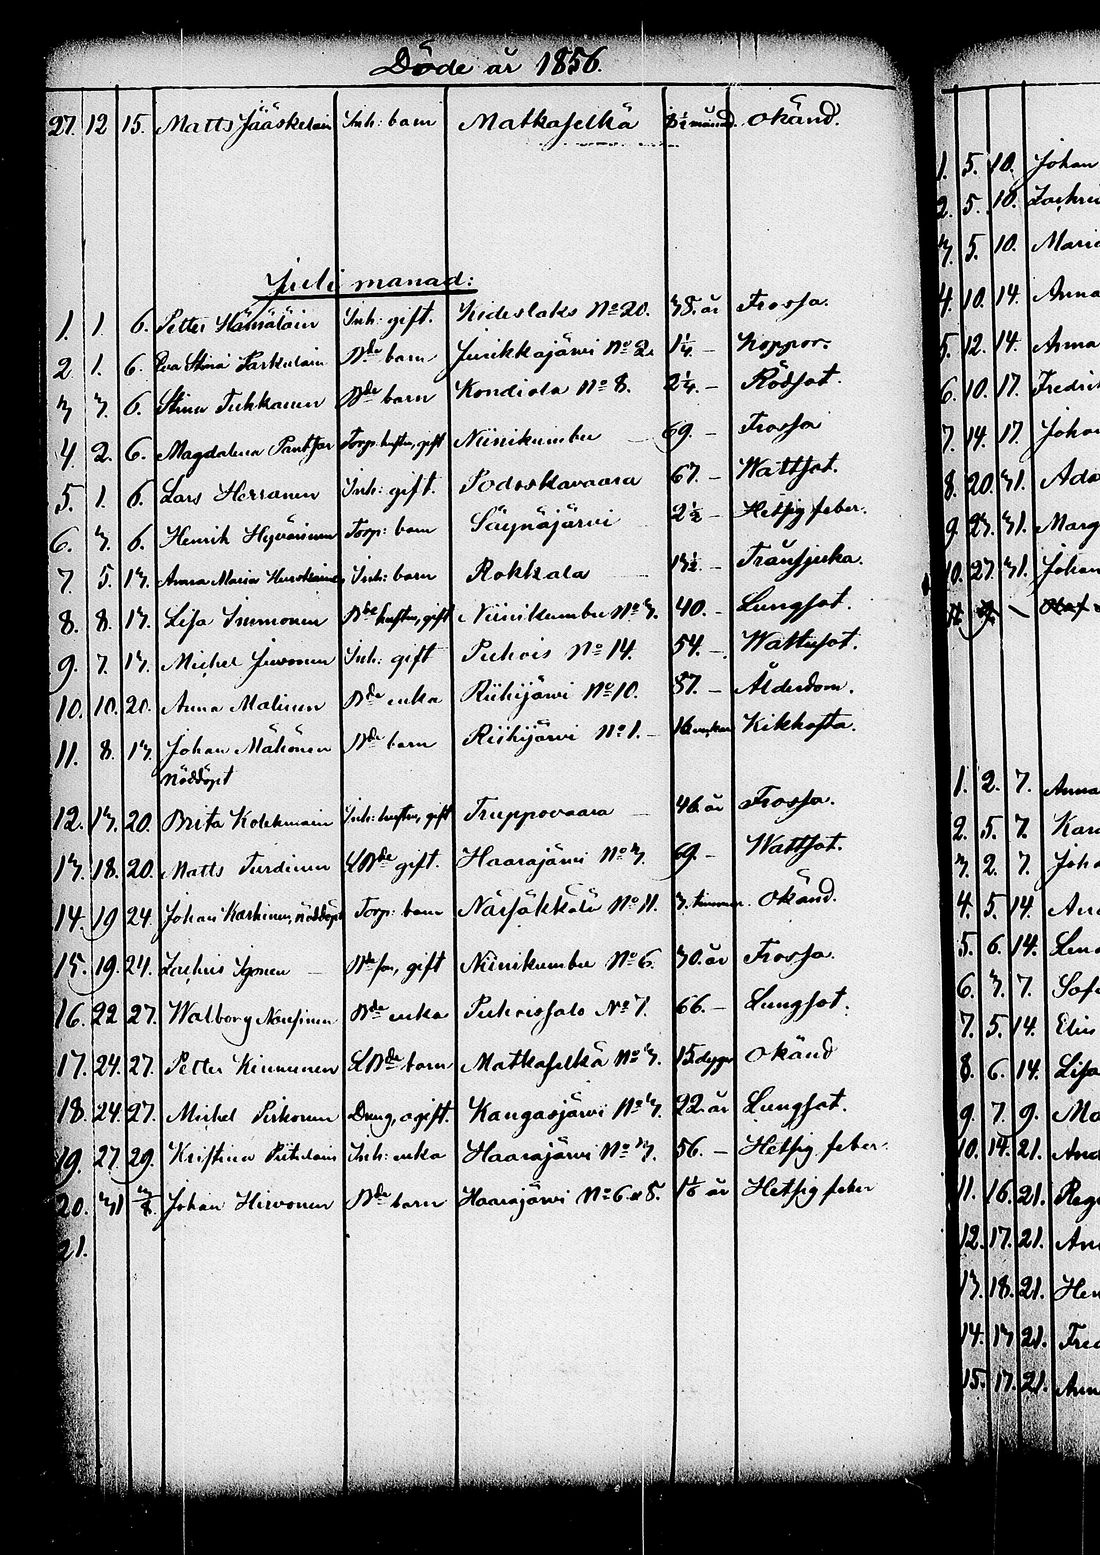 Döde år 1856.
27. 12 15. Matts Jääskeläin Inh: barn Matkaselkä 8½ månad. okänd.
Juli månad:
1. 1. 6. Petter Hämäläin Inh: gift. Kideslaks No 20. 38. år Frossa.
2 1. 6. Eva Stina Parkulain Dde barn Juvikkajärvi No 2. 1¼. – Koppor.
3 3. 6. Stina Tukkanen Dde barn Kondiola No 8. 2¼. – Rödsot.
4. 2. 6. Magdalena Torp: hustru, gift Niinikumbu 69. – Frossa
5. 1. 6. Lars Herranen Inh: gift. Podoskavaara 67. – Wattsot.
6. 3. 6. Henrik Hyvärinen Torp: barn Säynäjärvi 2½ – Hetsig feber.
7 5. 13. Anna Maria Inh: barn Rokkala 13½. – Trånsjuka.
8. 8. 13. Lisa Immonen Dde hustru, gift Niinikumbu No 3. 40. – Lungsot.
9. 7. 13. Michel Juvonen Inh: gift Puhois No 14. 54. – Wattusot.
10. 10. 20. Anna Malinen Dde enka Riihijärvi No 10. 87. – Ålderdom.
11. 8. 13. Johan Mähönen Dde barn Riihijärvi No 1. – 16 veckor Kikhosta.
nöddöpt
12. 13. 20. Brita Kolehmain Inh: hustru, gift Truppovaara 46. år Frossa.
13. 18. 20. Matts Turdinen LBde gift. Haarajärvi No 3. 69. – Wattsot.
14. 19 24. Johan Karhinen, nöddöpt Torp: barn No 11. 3. timmar. okänd.
15. 19. 24. Zachris Ignen – Dde son, gift Niinikumbu No 6. 30. år Frossa.
16. 22 27. Walborg Nousiinen Dde enka Puhoissalo No 7. 66. – Lungsot.
17. 24. 27. Petter Kinnunen LBde barn Matkaselkä No 3. 15 dygn okänd
18. 24. 27. Michel Pirhonen Dreng, ogift. Kangasjärvi No 3. 22. år Lungsot.
19. 27. 29. Kristina Inh: enka Haarajärvi No 3. 56. – Hetsig feber.
20. 31 Johan Hirvonen Dde barn Haarajärvi No 6. 8. år Hetsig feber
21.
1. 5. 10. Johan
2. 5. 10.
3. 5. 10. Maria
4. 10. 14. Anna
5. 12. 14. Anna
6. 10. 17. Fredrik
7. 14. 17. Johan
8. 20. 31. Ada
9. 23. 31. Marg
10. 27. 31. Johan
1. 2. 7. Anna
2. 5. 7. Kar
3. 2. 7. Joha
4. 5. 14. An
5. 6. 14. Len
6. 3. 7. Sof
7. 5. 14. Elin
8. 6. 14. Lisa
9. 7. 9. Ma
10. 14. 21. And
11. 16. 21. Reg
12. 17. 21. An
13. 18. 21. Hen
14. 13 21. Fred
15. 17. 21. Ann